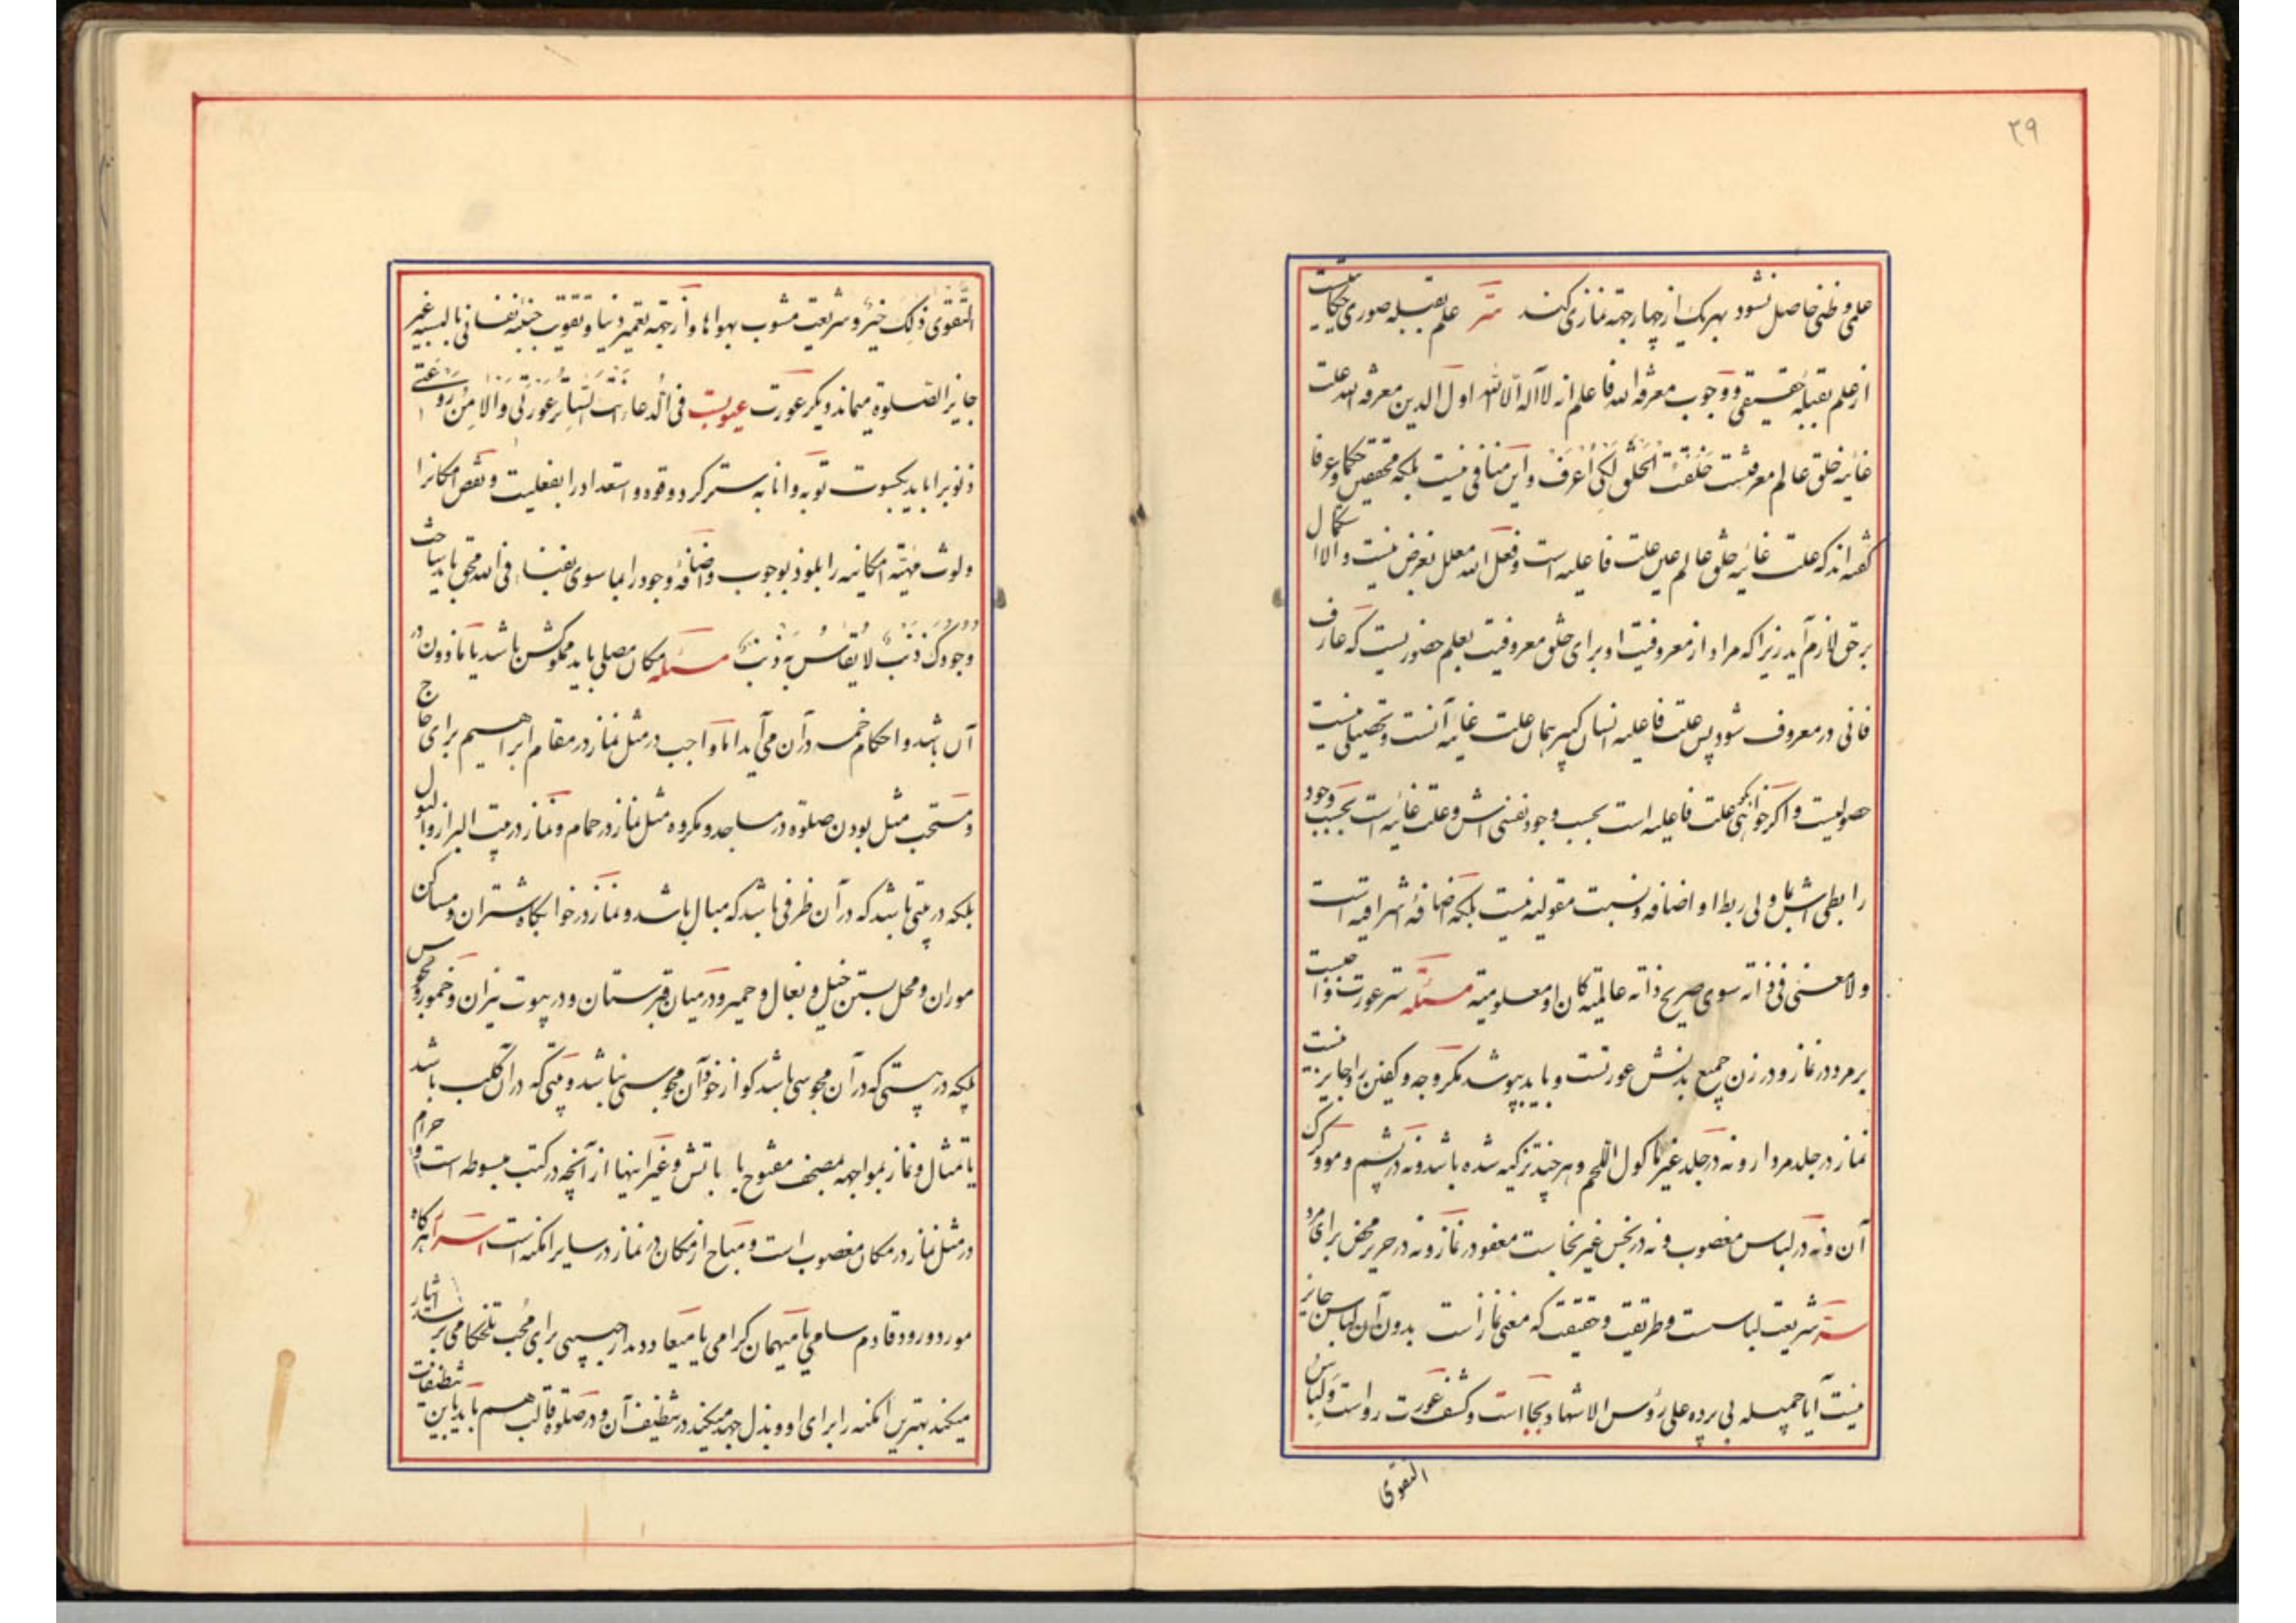 ۲۹
علمی و ظنی حاصل نشود بهریک از چهار جهة نماز می کند سرّ علم بقبله صوری حکایتیست
از علم بقبله حقیقی و وجوب معرفة الله فاعلم انه لا اله الا الله اول الدین معرفة الله علت
غائیه خلق عالم معرفتست خَلَقْتُ الخَلْقَ لِکَیْ اُعْرَفَ و این منافی نیست بلکه محققین حکما و عرفا
گفته اند که علت غائیه خلق عالم عین علت فاعلیه است و فعل الله معلل بغرض نیست و الا استکمال
بر حق لازم آید زیرا که مراد از معروفیت او برای خلق معروفیت بعلم حضوریست که عارف
فانی در معروف شود پس علت فاعلیه انسان کبیر همان علت غائیه آنست و تحصیلی نیست
حصولیست و اگر خواهی بگو علت فاعلیه است بحسب وجود نفسی اش و علت غائیه است بحسب وجود
رابطی اش بما ولی ربط او اضافه و نسبت مقولیه نیست بلکه اضافهٔ اشراقیه است
و لا معنی فی ذاته سوی صریح ذاته عالمیته کان او معلومیته مسئله ستر عورت واجبست
بر مرد در نماز و در زن جمیع بدنش عورتست و باید بپوشد مگر وجه و کفین را و جایز نیست
نماز در جلد مردار و نه در جلد غیر ماکول اللحم و هر چند تزکیه شده باشد و نه در پشم و مو و کرک
آن و نه در لباس مغصوب و نه در نجس غیر نجاست معفو در نماز و نه در حریر محض برای مرد
سرّ شریعت لباسست و طریقت و حقیقت که مغنی نماز است بدون آن لباس جایز
نیست آیا جمیله بی پرده علی رؤس الاشهاد بجا است و کشف عورت رواست وَلِباسُ
التقوی
التَّقوی ذلِکَ خَیْرٌ و شریعت مشوب بهواها و از جهة تعمیر دنیا و تقویت جنبه نفسانی بالبسه غیر
جایز الصلوة میماند و دیگر عورت عیوبست فی الدعاء انت السّاتِرُ عَوْرَتی وَالامِنُ رَوْعَتی
ذنوب را باید بکسوت توبه و انابه ستر کرد و قوه و استعداد را بفعلیت و نقص امکان را
و لوث مهیّته امکانیه را بلوذ بوجوب و اضافهٔ وجود را بما سوی بفنا فی الله محق باید ساخت
وُجُودُکَ ذَنْبٌ لا یُقاسُ بِهِ ذَنْبٌ مسئله مکان مصلی باید مملوکش باشد یا ماذون در
آن باشد و احکام خمسه در آن می آید اما واجب در مثل نماز در مقام ابراهیم برای حاج
و مستحب مثل بودن صلوة در مساجد و مکروه مثل نماز در حمام و نماز در بیت البراز و البول
بلکه در بیتی باشد که در آن ظرفی باشد که مبال باشد و نماز در خوابگاه شتران و مساکن
موران و محل بستن خیل و بغال و حمیر و در میان قبرستان و در بیوت نیران و خمور و مجوس
بلکه در بیتی که در آن مجوسی باشد گو از خود آن مجوسی نباشد و بیتی که در آن کلب باشد
یا تمثال و نماز بمواجهه مصحف مفتوح یا باتش و غیر اینها از آنچه در کتب مبسوطه است و حرام
در مثل نماز در مکان مغصوب است و مباح از مکان در نماز در سایر امکنه است اسرار هرگاه
مورد ورود قادم سامی یا میهمان گرامی یا میعاد دیدار حبیبی برای محب تلخکامی برسد ایثار
میکند بهترین امکنه را برای او و بذل جهد میکند در تنظیف آن و در صلوة قالب هم باید باین تنظیفات